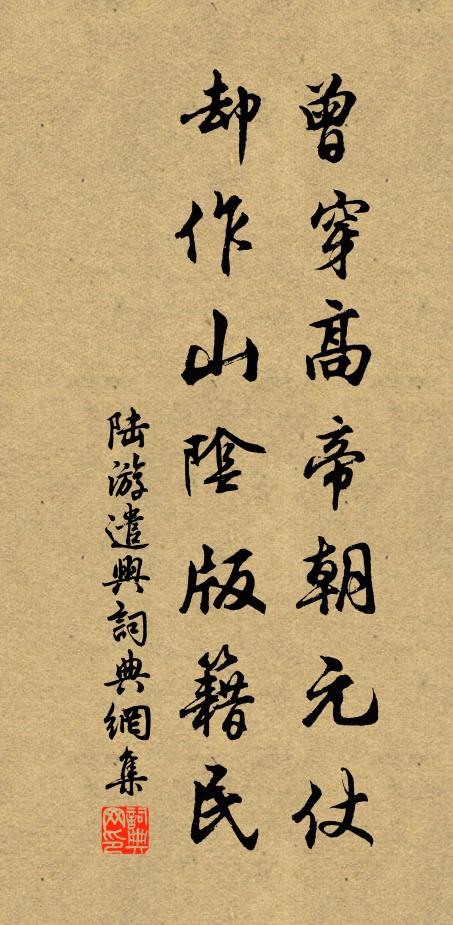 曾穿高帝朝元仗
却作山陰版籍民
陆游遣興詞典網集
詞典网印